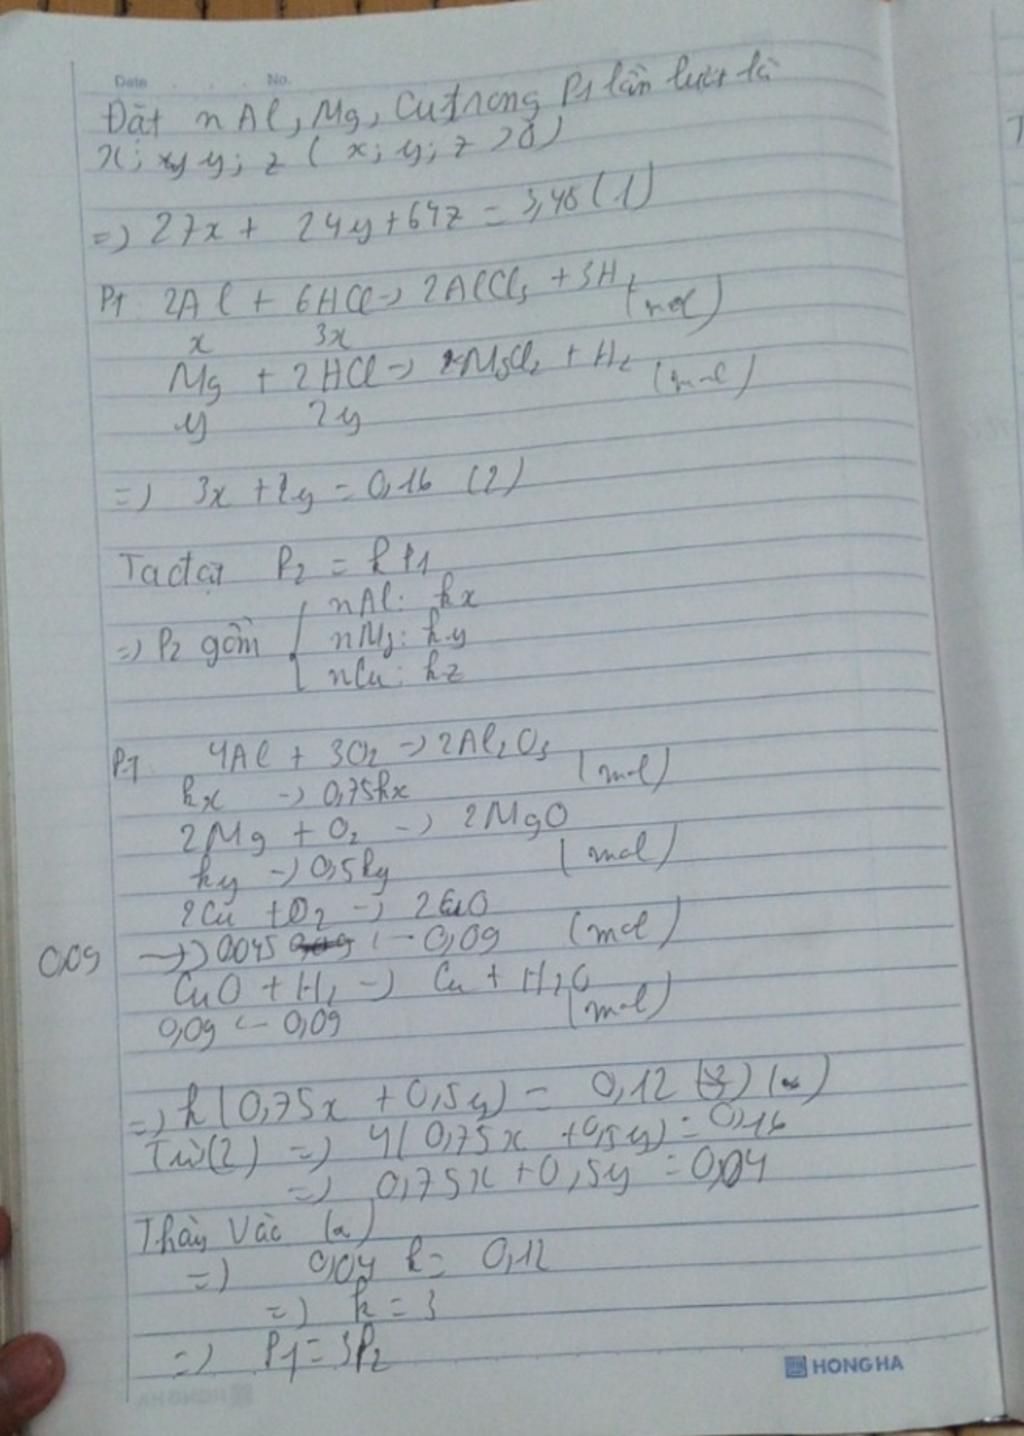 Date No.
Đặt n Al, Mg, Cu trong P1 lần lượt là
x; y; z ( x; y; z >0)
=) 27x + 24y + 64z = 3,48 (1)
P1 2Al + 6HCl -> 2AlCl3 + 3H2
x 3x (mol)
Mg + 2HCl -> MgCl2 + H2
y 2y (mol)
=) 3x + 2y = 0,16 (2)
Ta đặt P2 = kP1
=) P2 gồm { nAl: kx
nMg: ky
nCu: kz
P1 4Al + 3O2 -> 2Al2O3
kx -> 0,75kx (mol)
2Mg + O2 -> 2MgO
ky -> 0,5ky (mol)
2Cu + O2 -> 2CuO
0,09 -> 0,045 <- 0,09 (mol)
CuO + H2 -> Cu + H2O
0,09 <- 0,09 (mol)
=) k(0,75x + 0,5y) = 0,12 (*)
Từ (2) =) 4(0,75x + 0,5y) = 0,16
=) 0,75x + 0,5y = 0,04
Thay vào (*)
=) 0,04 k = 0,12
=) k = 3
=) P1 = 3P2
HONG HA